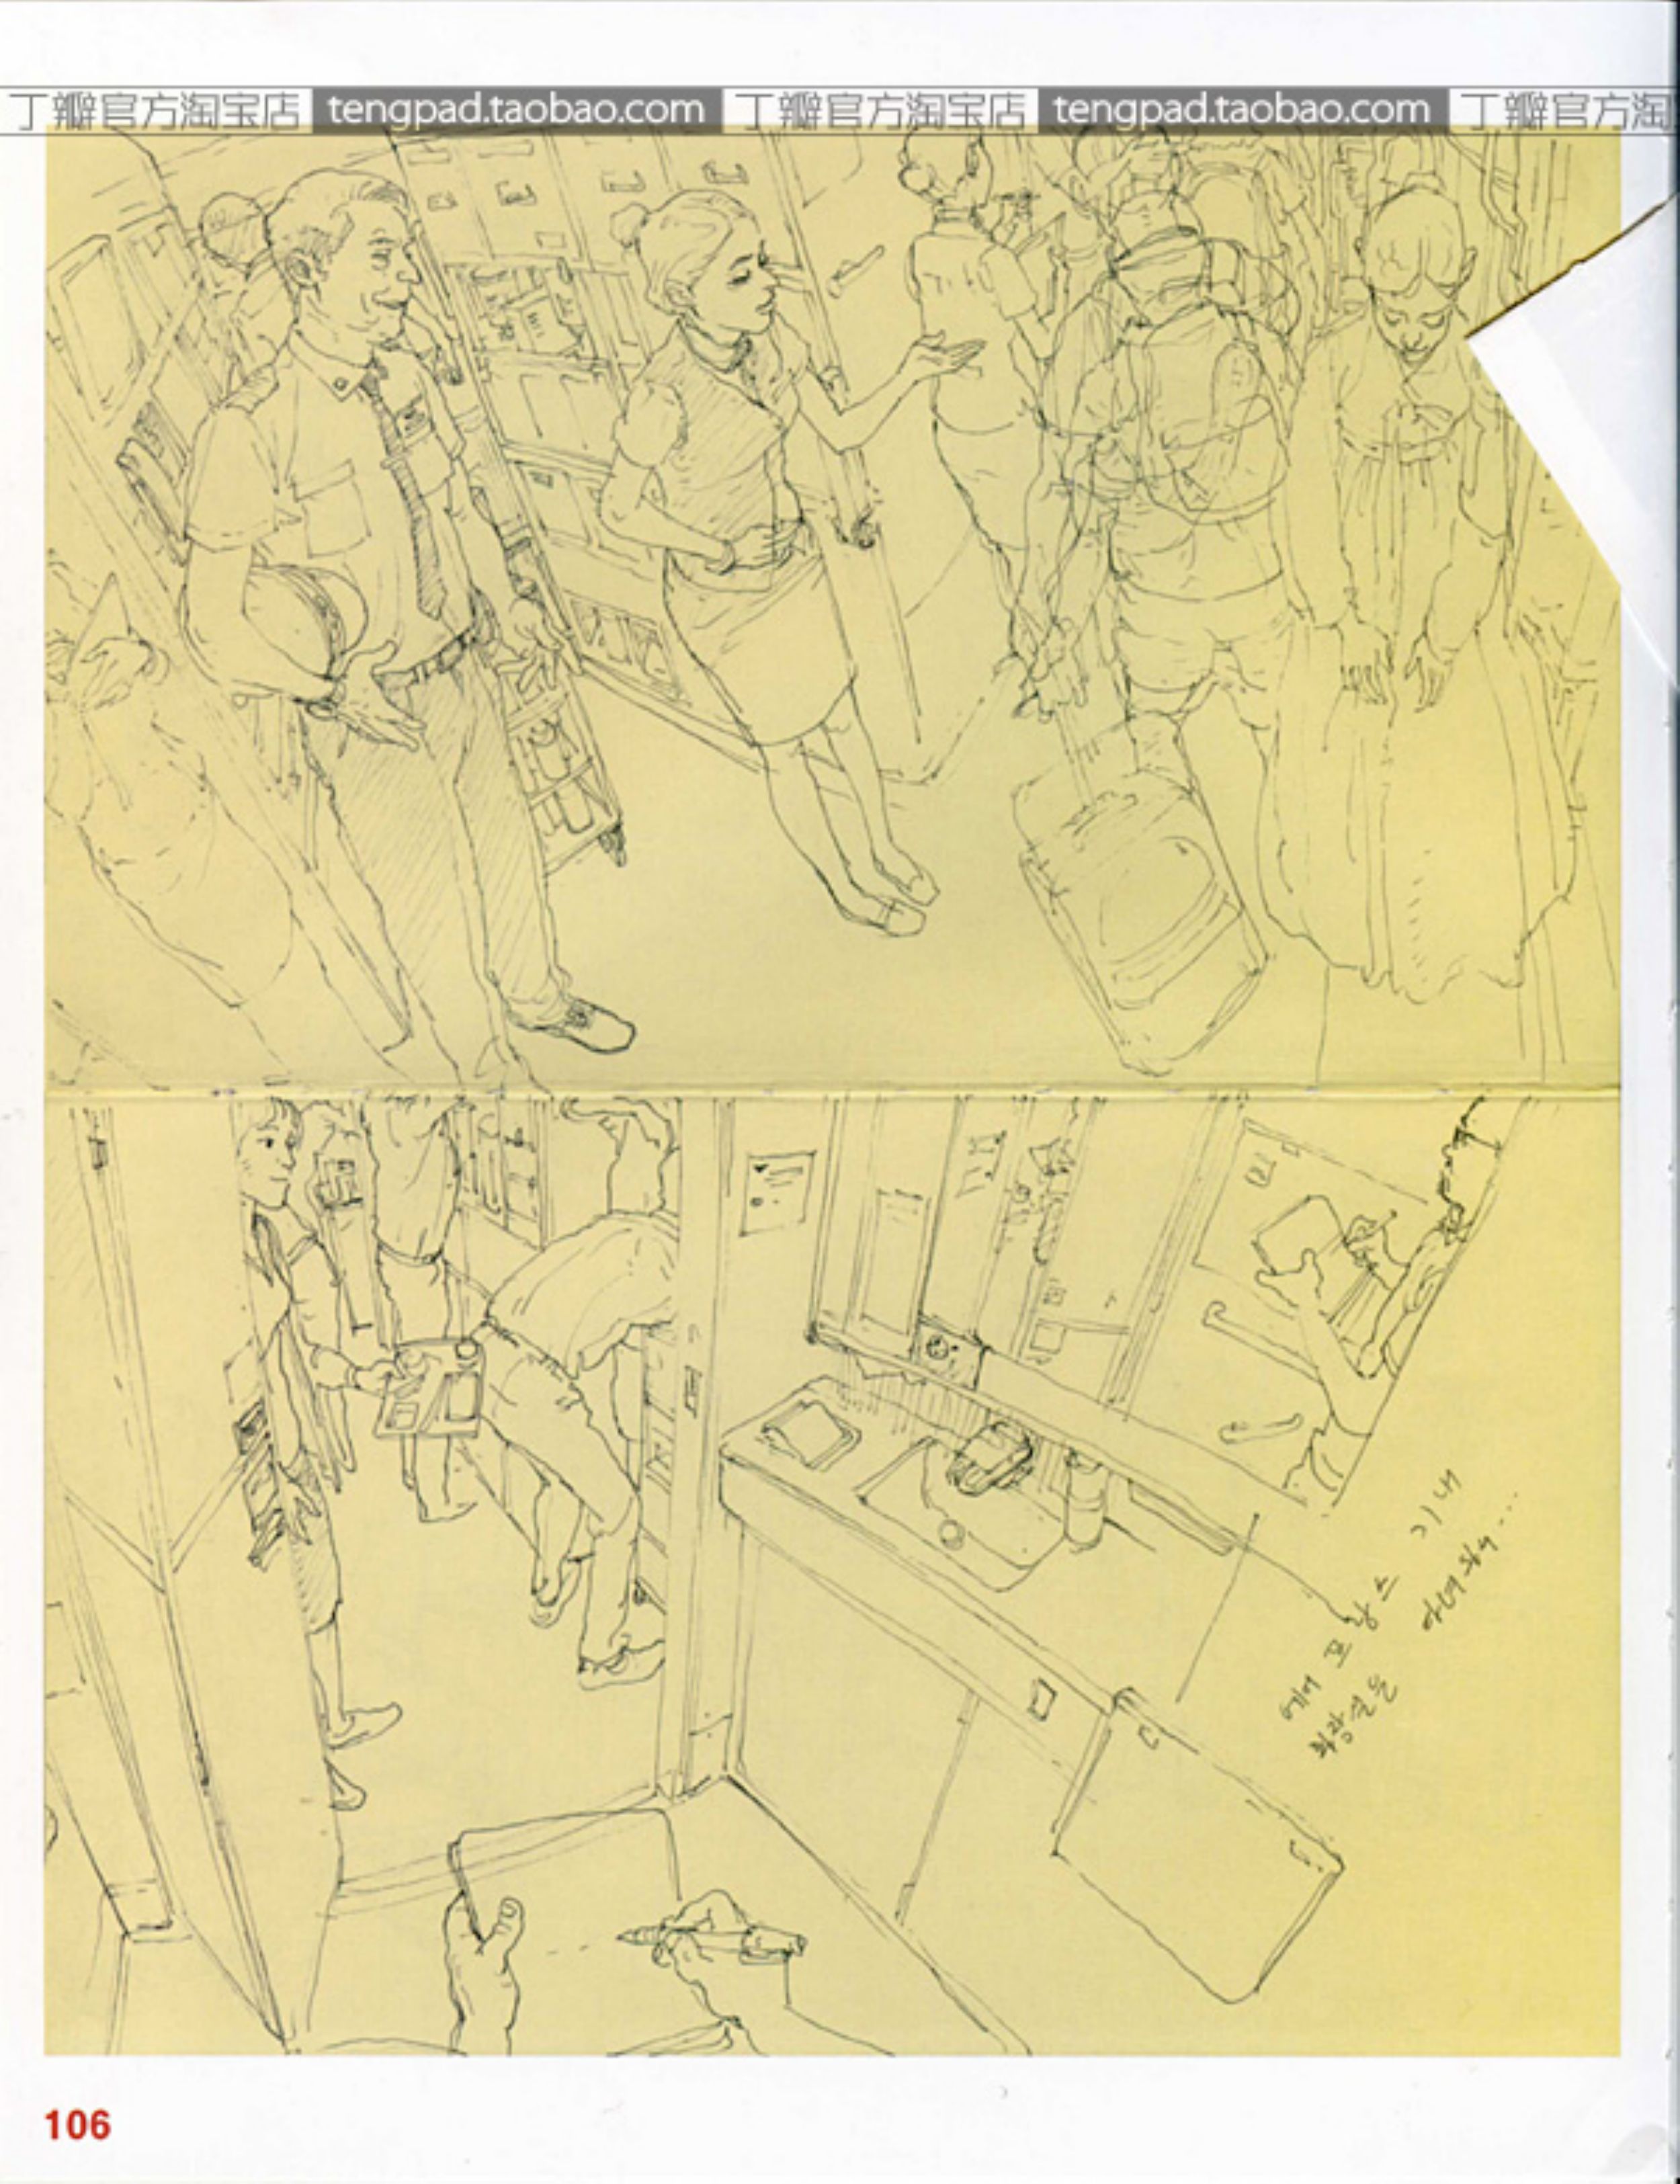 丁瓣官方淘宝店 tengpad.taobao.com 丁瓣官方淘宝店 tengpad.taobao.com 丁瓣官方淘
에어 프랑스 기내
화장실을
106